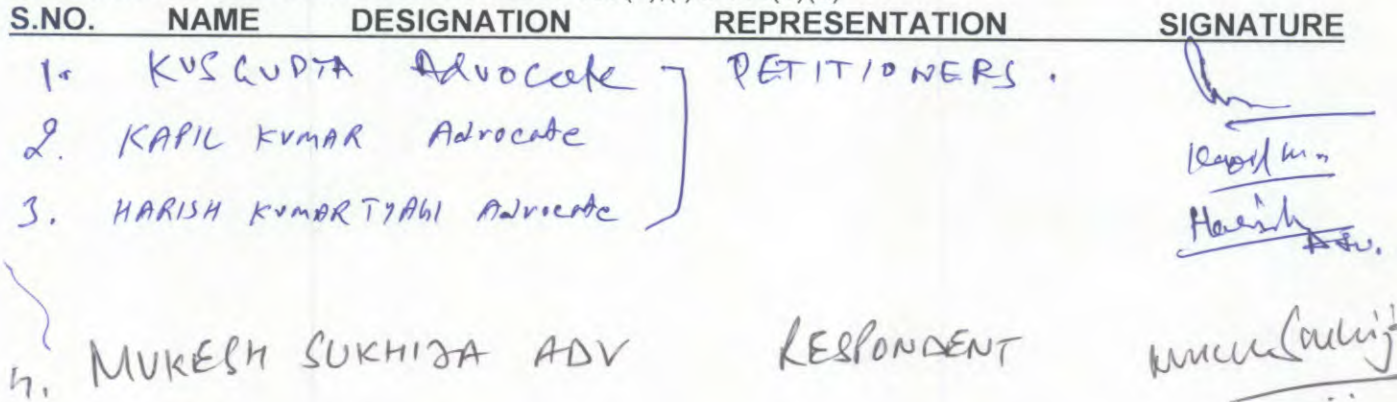 S.NO. NAME DESIGNATION REPRESENTATION SIGNATURE
1. KVS GUPTA Advocate PETITIONERS.
2. KAPIL KUMAR Advocate
3. HARISH KUMAR TYAGI Advocate Harish Adv.
4. MUKESH SUKHIJA ADV RESPONDENT